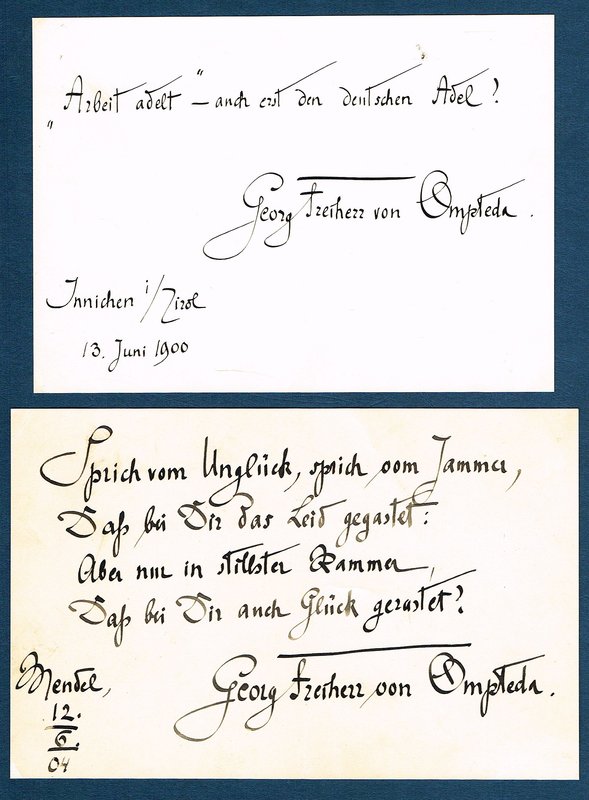 „Arbeit adelt“ – auch erst den deutschen Adel?
Georg Freiherr von Ompteda.
Innichen i/Tirol
13. Juni 1900
Sprich vom Unglück, sprich vom Jammer,
Daß bei Dir das Leid gegastet:
Aber nur in stillster Kammer,
Daß bei Dir auch Glück gerastet!
Mendel,
12.
6.
04
Georg Freiherr von Ompteda.